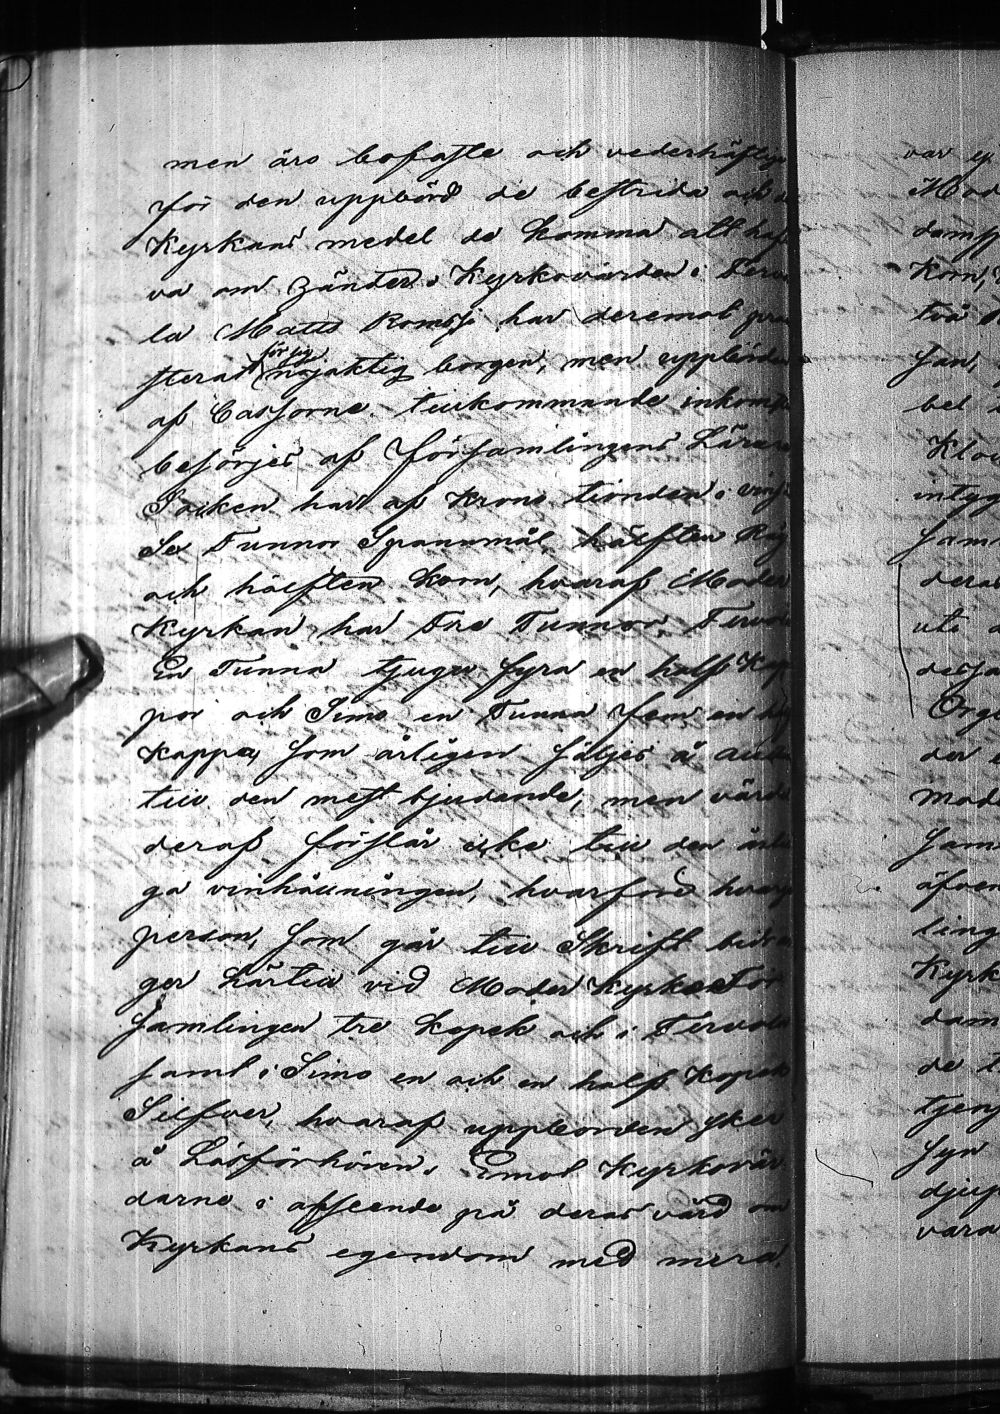 men äro bofaste och vederhäftige
för den uppbörd de bestrida och
Kyrkans medel de komma att haf
va om händer. Kyrkovärden i Tervo
la Matts Romsi har deremot præ
sterat för sig nöjaktig borgen, men uppbörden
af Cassorne tillkommande inkomst
besörjes af Församlingens Lärare
Socken har af Krono tionden
Sex Tunnor Spannmål, hälften Råg
och hälften Korn, hvaraf Moder
Kyrkan har Tre Tunnor, Tervola
En Tunna tjugu fyra en half Kap
por och Simo en Tunna fem en half
kappa, som årligen säljes å auktion
till den mest bjudande, men värdet
deraf förslår icke till den årli
ga vinhållningen, hvarföre hvarje
person, som går till Skrift bidra
ger härtill vid Moder Kyrko För
samlingen tre kopek och i Tervola
samt i Simo en och en half Kopek
Silfver, hvaraf uppbörden sker
å Läsförhören. Emot Kyrkovär
darne i afseende på deras vård om
Kyrkans egendom med mera,
var ej
Mod
Korn,
två
bel
Klo
intyg
deras
uti
dessa
Org
der
mod
även
ling
Kyrk
de t
tjens
syn
djup
vara